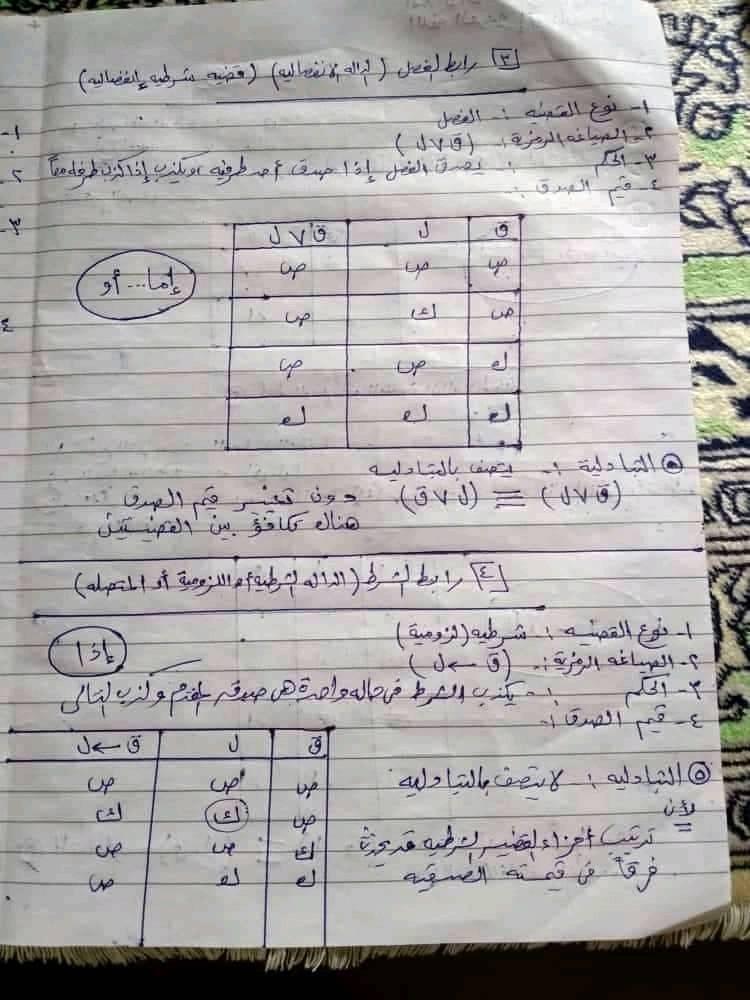 [٣] رابط الفصل (الدالة الانفصالية) (قضية شرطية إنفصالية)
١- نوع القضية :- الفصل
٢- الصياغة الرمزية :- (ق ٧ ل)
٣- الحكم :- يصدق الفصل إذا صدق أحد طرفيه ويكذب إذا كذب طرفاه معاً
٤- قيم الصدق :-
ق ل ق ٧ ل
ص ص ص
ص ك ص
ك ص ص
ك ك ك
إما... أو
٥ التبادلية :- يتصف بالتبادلية
(ق ٧ ل) ≡ (ل ٧ ق) دون تغير قيم الصدق
هناك تكافؤ بين القضيتين
[٤] رابط الشرط (الدالة الشرطية أو اللزومية أو المتصلة)
١- نوع القضية :- شرطية (لزومية)
إذا
٢- الصياغة الرمزية :- (ق ← ل)
٣- الحكم :- يكذب الشرط في حالة واحدة هى صدق المقدم وكذب التالى
٤- قيم الصدق :-
ق ل ق ← ل
ص ص ص
ص ك ك
ك ص ص
ك ك ص
٥ التبادلية :- لا يتصف بالتبادلية
لأن
ترتيب أجزاء القضية الشرطية قد يحدث
فرقاً فى قيمته الصدقية
١-
٢-
٣-
٤